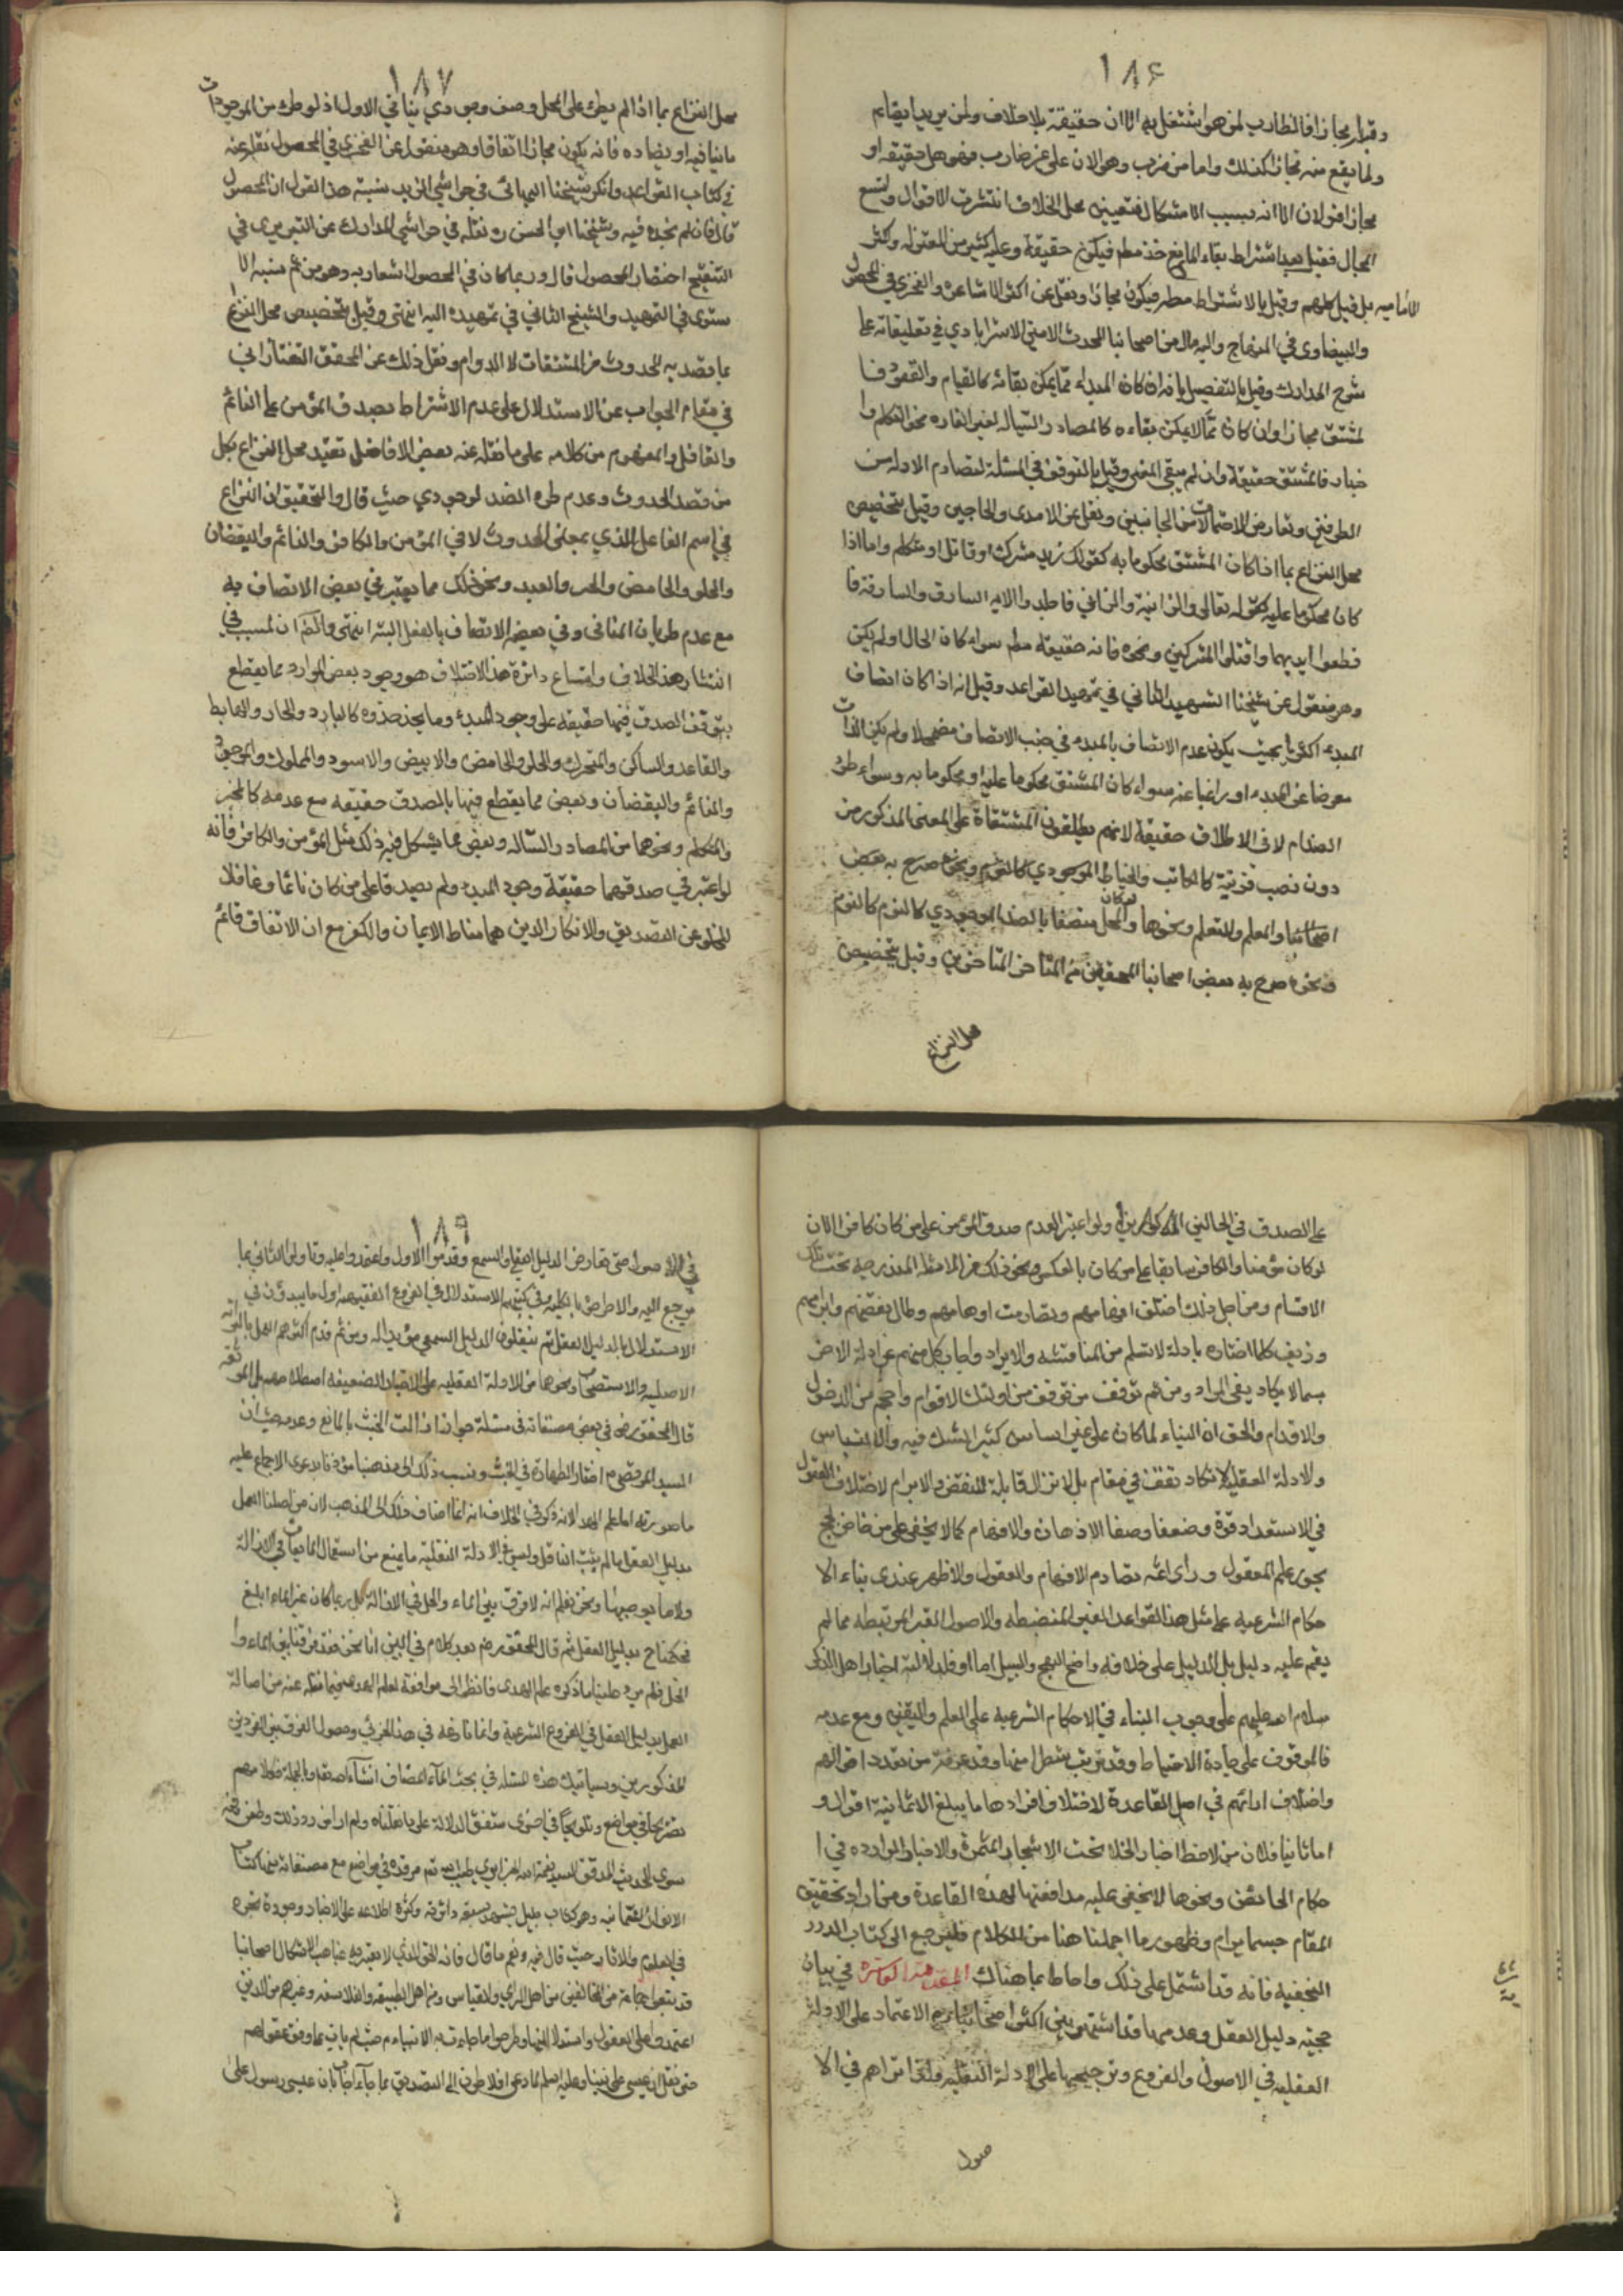 ١٨۶
وقرار مجازا فالضارب لمن هو اشتغل به الان حقيقة بلا خلاف ولمن يريد ايقاعه
ولما يقع منه مجازا كذلك واما من ضرب وهو الان على غير ضارب فهو هل حقيقة او
مجاز قولان الا انه بسبب الاشكال في تعيين محل الخلاف انتشرت الاقوال واتسع
المجال فقيل بعد اشتراط بقاء المأخذ مطم فيكون حقيقة وعليه كثير من المعتزله واكثر
الاماميه بل قيل كلهم وقيل بالاشتراط مطم فيكون مجازا ونقل عن اكثر الاشاعرة والفخري في المحصول
والبيضاوي في المنهاج واليه مال من اصحابنا المحدث الامين الاسترابادي في تعليقاته على
شرح المدارك وقيل بالتفصيل بانه ان كان المبداء مما يمكن بقائه كالقيام والقعود فا
لمشتق مجاز اوان كان مما لا يمكن بقاءه كالمصادر السياله لغير القاره نحو التكلم وا
خبار فالمشتق حقيقة وان لم يبقى المعنى وقيل بالتوقف في المسئلة لتصادم الادله من
الطرفين وتعارض الاحتمالات من الجانبين ونقل عن الامدى والحاجبي وقيل بتخصيص
محل النزاع بما اذا كان المشتق محكوما به كقولك زيد مشرك او قاتل او متكلم واما اذا
كان محكوما عليه كقوله تعالى والزانية والزاني فاجلدوا الايه السارق والسارقة فا
قطعوا ايديهما واقتلوا المشركين ونحوه فانه حقيقة مطم سواء كان الحال او لم يكن
وهو منقول عن شيخنا الشهيد الثاني في تمهيد القواعد وقيل انه اذا كان اتصاف
المبدء اكثريا بحيث يكون عدم الاتصاف بالمبدء في جنب الاتصاف مضمحلا ولم يكن الذات
معرضا عن المبدء او راغبا عنه سواء كان المشتق محكوما عليه او محكوما به وسواء طرء
الضد ام لا فالاطلاق حقيقة لانهم يطلقون المشتقاة على المعنى المذكور من
دون نصب قرينة كالكاتب والخياط الوجودي كالنوم ونحوه صرح به بعض
اصحابنا والمعلم والمتعلم ونحوها ولو كان المحل متصفا بالضد الوجودي كالنوم كالنوم
ونحوه صرح به بعض اصحابنا المحققين من المتاخر المتاخرين وقيل بتخصيص
محل النزاع
١٨٧
محل النزاع بما اذا لم يطرء على المحل وصف وجودي ينافي الاول اذ لو طرء من الموجودات
ما ينافيه او يضاده فانه يكون مجازا اتفاقا وهو منقول عن الفخري في المحصول نقله عنه
في كتاب القواعد وانكر شيخنا البهائى في حواشي الزبده نسبة هذا القول ان المحصول
قال فان لم نجده فيه وشيخنا ابي الحسن ره نقله في حواشي المدارك عن التبريزى في
التنقيح اختصار المحصول قال وربما كان في المحصول اشعار به وهو من ثم نسبه الا
سنوى في التمهيد والشيخ الثاني في تمهيده اليه انتهى وقيل بتخصيص محل النزاع
بما قصد به الحدوث من المشتقات لا الدوام ونقل ذلك عن المحقق التفتازاني
في مقام الجواب عن الاستدلال على عدم الاشتراط بصدق المؤمن على النائم
والغافل والمفهوم من كلامه على ما نقله عنه بعض الافاضل تقييد محل النزاع بكل
من قصد الحدوث وعدم طرء الضد لوجودي حيث قال والتحقيق ان النزاع
في اسم الفاعل الذي بمعنى الحدوث لا في المؤمن والكافر والنائم واليقضان
والحلو والحامض والحر والعبد ونحو ذلك مما يعتبر في بعض الاتصاف به
مع عدم طريان المنافى وفي بعضه الاتصاف بالفعل البتة انتهى والظ ان لسبب في
انتشار هذا الخلاف واتساع دائرة هذا الاختلاف هو وجود بعض الموارد مما يقطع
بتوقف الصدق فيها حقيقة على وجود المبدء وما يحذ حذوه كالبارد والحار والهابط
والقاعد والساكن والمتحرك والحلو والحامض والابيض والاسود والمملوك والموجود
والنائم واليقضان وبعض مما يقطع فيها بالصدق حقيقة مع عدمه كالمخبر
والمتكلم ونحوهما من المصادر السياله وبعض مما يشكل فيه ذلك مثل المؤمن والكافر فانه
لو اعتبر في صدقهما حقيقة وجود المبدء ولم يصدقا على من كان نائما وغافلا
للخلو عن التصديق والانكار الذين هما مناط الايمان والكفر مع ان الاتفاق قائم
على الصدق في الحالين المذكورين ولو اعتبر العدم صدق المؤمن على من كان كافر الان
لو كان مؤمنا والكافر سابقا على من كان بالعكس ونحو ذلك من الامثلة المندرجة تحت تلك
الاقسام ومن اجل ذلك اختلف افهامهم وتصادمت اوهامهم وطال نقضهم وابرامهم
وزيف كلما اختاره بادلة لا تسلم من المناقشه والايراد واجاب كل منهم عن ادلة الاخر
بما لا يكاد يفى المراد ومن ثم توقف من توقف من اولئك الاقوام واحجم من الدخول
والاقدام والحق ان البناء لما كان على غير اساس كثير الشك فيه والالتباس
والادلة العقليه لا تكاد تقف في مقام بل لا تزال قابلة للنقض والابرام لاختلاف العقول
في الاستعداد قوة وضعفا وصفا الاذهان والافهام كما لا يخفى على من خاض لجج
بحور علم المعقول وراى اغثه تصادم الافهام والعقول والاظهر عندى بناء الا
حكام الشرعيه على مثل هذا القواعد الغير المنضبطه والاصول الغير المرتبطه مما لم
يقم عليه دليل بل الدليل على خلافه واضح النهج والسبيل اما اولا فلدلالة اخبار اهل الذكر
سلام الله عليهم على وجوب البناء في الاحكام الشرعيه على العلم واليقين ومع عدمه
فالوقوف على جادة الاحتياط وقد مرت شطر منها وقد عرفت من تعدد اقوالهم
واختلاف ارائهم في اصل القاعدة لاختلاف افرادها ما يبلغ الا ثمانية اقوال و
اما ثانيا فلان من لاحظ اخبار الخلاء تحت الاشجار المثمرة والاخبار الوارده في ا
حكام الحائض ونحوها لا يخفى عليه مدافعتها لهذه القاعدة ومن اراد تحقيق
المقام حسبما يرام وظهور ما اجملنا هنا من الكلام فليرجع الى كتاب الدرر
النجفيه فانه قد اشتمل على ذلك واحاط بما هناك المقدمة العاشره في بيان
حجية دليل العقل وعدمها قد اشتهر بين اكثر اصحابنا رضي الاعتماد على الادلة
العقليه في الاصول والفروع وترجيحها على الادلة النقليه ولذا تراهم في الا
صول
١٨٩
في الاصول متى تعارض الدليل العقلي والسمع وقدموا الاول واعتمدوا عليه وتاولوا الثاني بما
يرجع اليه والا طرحوه بالكلية وفي كتبهم الاستدلالية في الفروع الفقهيه اول ما يبدؤن في
الاستدلال بالدليل العقل ثم ينقلون الدليل السمعي مؤيدا له ومن ثم قدم اكثرهم العمل بالبرائه
الاصليه والاستصحاب ونحوها من الادلة العقليه على الاخبار الضعيفه اصطلاحا بل الموثقه
قال المحقق رض في بعض مصنفاته في مسئلة جواز ازالت الخبث بالمائع وعدمه حيث ان
السيد المرتضى م اختار الطهارة في الخبث ونسب ذلك الى مذهبنا مؤذنا بدعوى الاجماع عليه
ما صورته اما علم الهدى لانه ذكر في الخلاف انه انما اضاف ذلك الى المذهب لان من اصلنا العمل
بدليل العقل ما لم يثبت الناقل وليس في الادلة النقلية ما يمنع من استعمال المايعات في الازالة
ولا ما يوجبها ونحن نعلم انه لا فرق بين الماء والخل في الازالة بل ربما كان غير الماء ابلغ
فحكمنا ح بدليل العقل ثم قال المحقق رض بعد كلام في البين انا نحن فقد فرقنا بين الماء وا
الخل فلم يرد علينا ما ذكره علم الهدى فانظر الى موافقة لعلم الهدى فيما نقله عنه من اصالة
العمل بدليل العقل في الفروع الشرعية وانما نازعه في هذا الجزئي وحصول الفرق بين الفردين
المذكورين وسياتيك هذه المسئله في بحث الماء المضاف انشاء الله تعالى وبالجملة فكلامهم
تصريحا في مواضع وتلويحا في اخرى متفق الدلالة على ما نقلناه ولم ار من رد ذلك وطعن فيه
سوى المحدث المدقق السيد نعمة الله الجزايري طيب الله ثم مرقده في مواضع مع مصنفاته منها كتاب
الانوار النعمانيه وهو كتاب جليل يشهد بسعة دائرته وكثرة اطلاعه على الاخبار وجودة تبحره
في العلوم والاثار حيث قال فيه ونعم ما قال فانه الحق الذي لا يعتريه غياهب الاشكال اصحابنا
قد يتبعوا جماعة من المخالفين من اهل الراي والقياس ومن اهل الطبيعه والفلاسفه وغيرهم من الذين
اعتمدوا على العقول واستدلالاتها وطرحوا ما جاءت به الانبياء م حيث لم يات بما وفق عقولهم
حتى نقل ان عيسى على نبينا وعليه السلم لما دعى افلاطون الى التصديق بما جاء اجاب بان عيسى رسول على